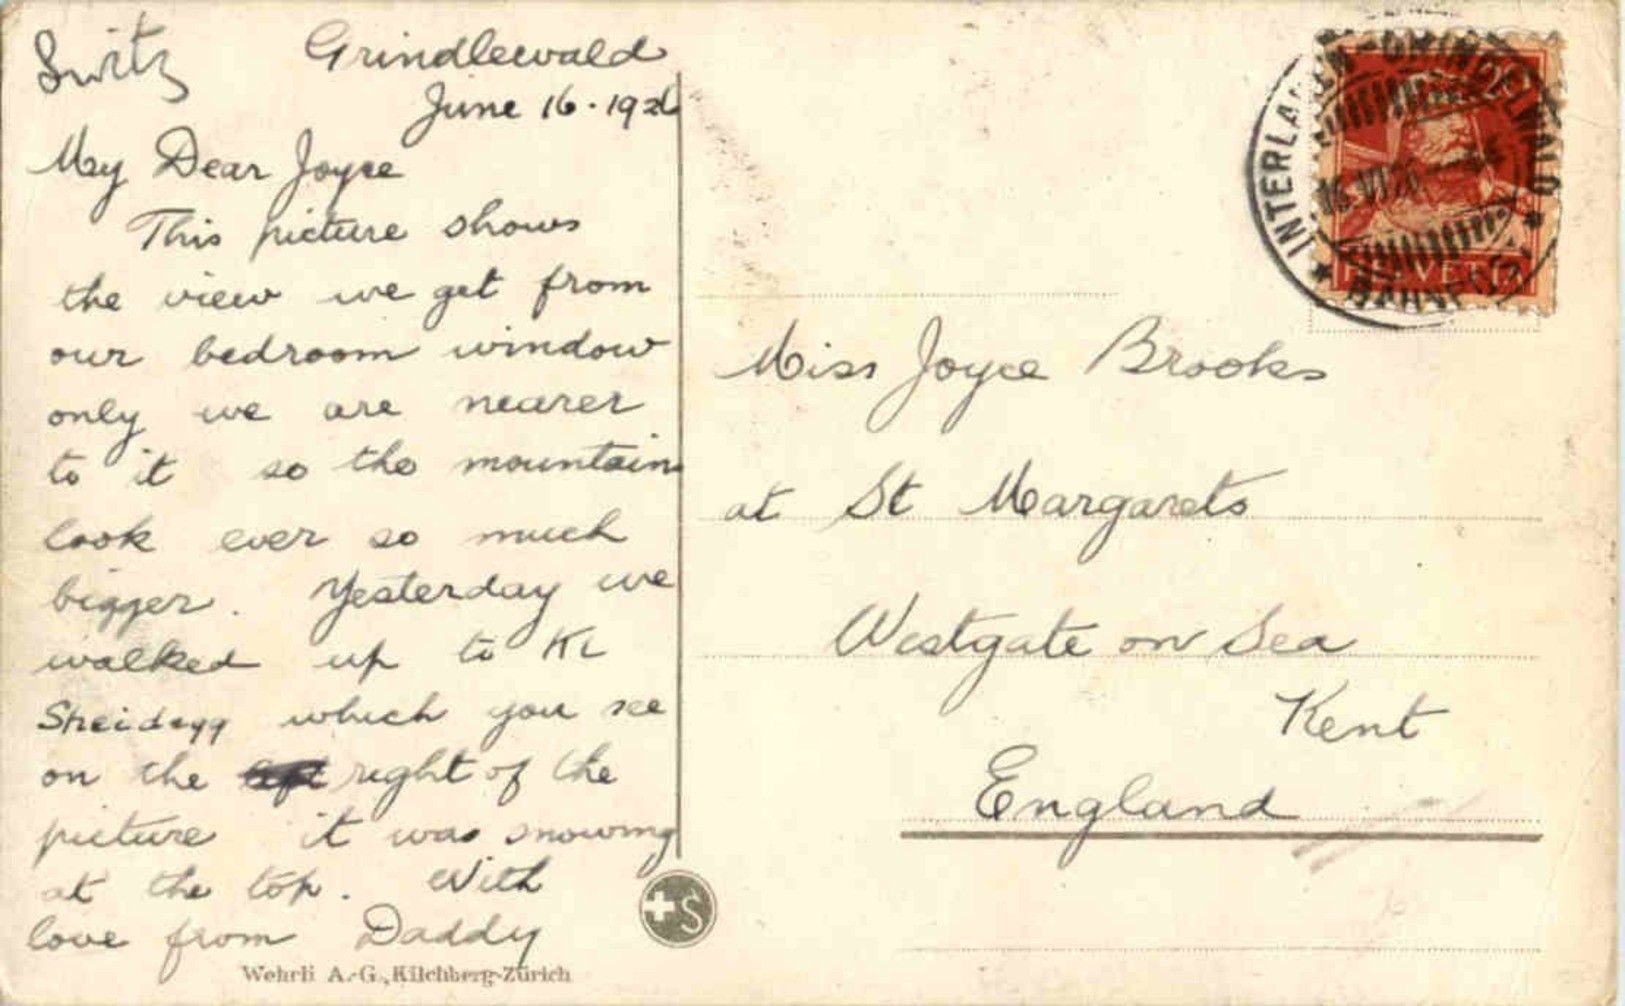 Switz Grindlewald
June 16 - 1926
My Dear Joyce
This picture shows
the view we get from
our bedroom window
only we are nearer
to it so the mountains
look ever so much
bigger. Yesterday we
walked up to Kl
Sheidegg which you see
on the left right of the
picture it was snowing
at the top. With
love from Daddy
Wehrli A.-G., Kilchberg-Zürich
S
INTERLAKEN-GRINDELWALD
16.VI.26
HELVETIA
Miss Joyce Brooks
at St Margarets
Westgate on Sea
Kent
England